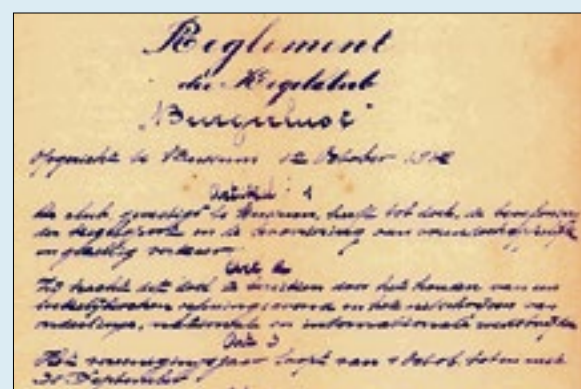 Reglement
der Kegelclub
"Burgerlust"
Opgericht te 12 October
Artikel 1
De club, gevestigd te heeft tot doel, de beoefening
der kegelsport en de bevordering van
en gezellig verkeer
Art 2
Zij tracht dit doel te bereiken door het houden van een
wekelijkschen oefeningsavond en het uitschrijven van
onderlinge, nationale en internationale wedstrijden
Art 3
Het vereenigingsjaar loopt van 1 Octob. tot en met
30 September